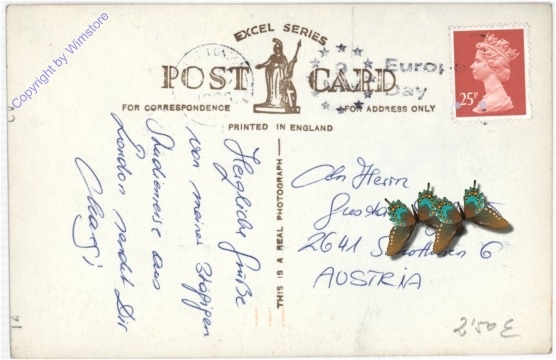 Copyright by Wimstore
EXCEL SERIES
POST CARD
FOR CORRESPONDENCE
FOR ADDRESS ONLY
PRINTED IN ENGLAND
Europe
Day
25P
THIS IS A REAL PHOTOGRAPH
Herzliche Grüße
von meiner 3tägigen
Studienreise aus
London sendet Dir
An Herrn
2641
6
AUSTRIA
2'50€